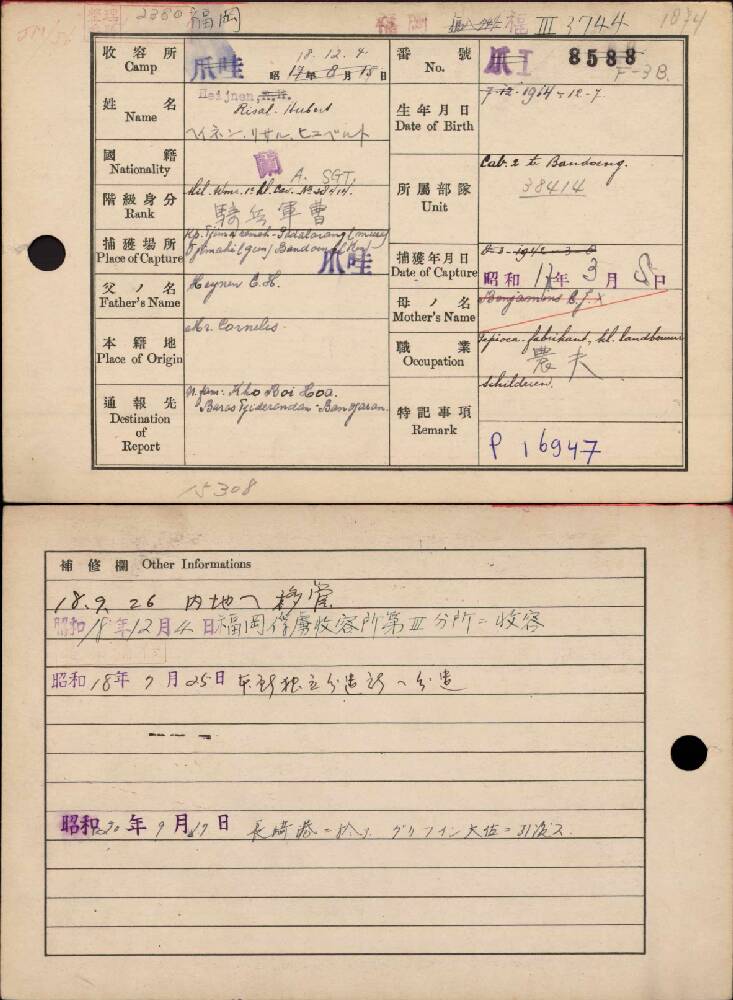 2380 福岡 福岡 福 III 3744 1074
收容所 Camp 爪哇 18.12.4 昭 17年 8月 15日
番號 No. 爪 I 8588 F-3B.
姓名 Name Heijnen, Risal-Hubert ヘイネン.リサル.ヒユーベルト
生年月日 Date of Birth 7-12-1914-12-7
國籍 Nationality 蘭
階級身分 Rank A. SGT. 騎兵軍曹
所屬部隊 Unit Cab. 2 te Bandoeng. 38414
捕獲場所 Place of Capture 爪哇
捕獲年月日 Date of Capture 昭和 17年 3月 8日
父ノ名 Father's Name
母ノ名 Mother's Name Benjamins
本籍地 Place of Origin Mr. Cornelis.
職業 Occupation Tapioca-fabrikant, kl. landbouwer 農夫
通報先 Destination of Report
特記事項 Remark schilderen. P 16947
15308
補修欄 Other Informations
18.9.26 内地ヘ移管
昭和18年12月4日福岡俘虜收容所第III分所ニ收容
昭和18年 9月25日
昭和20年9月17日 長崎港ニ於テグリフイン大佐ニ引渡ス